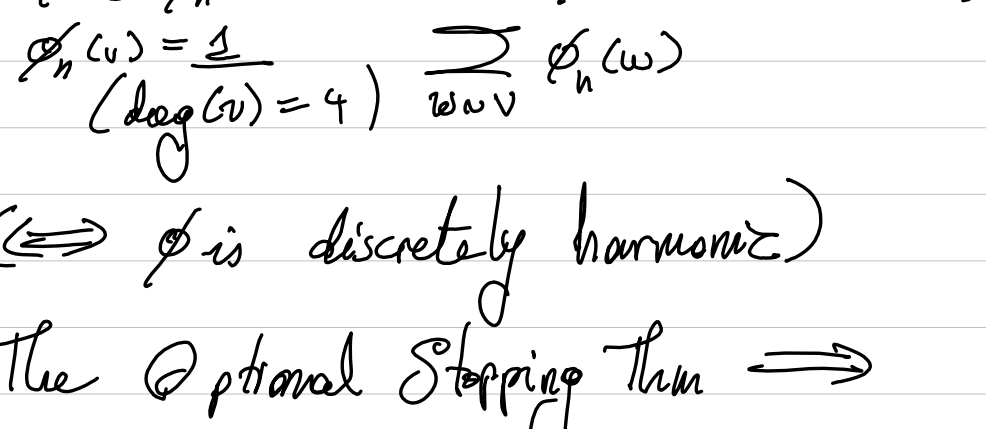 ϕₙ(v) = 1/(deg(v) = 4) ∑_{w∼v} ϕₙ(w)
(⟺ ϕ is discretely harmonic)
The Optional Stopping Thm ⟹